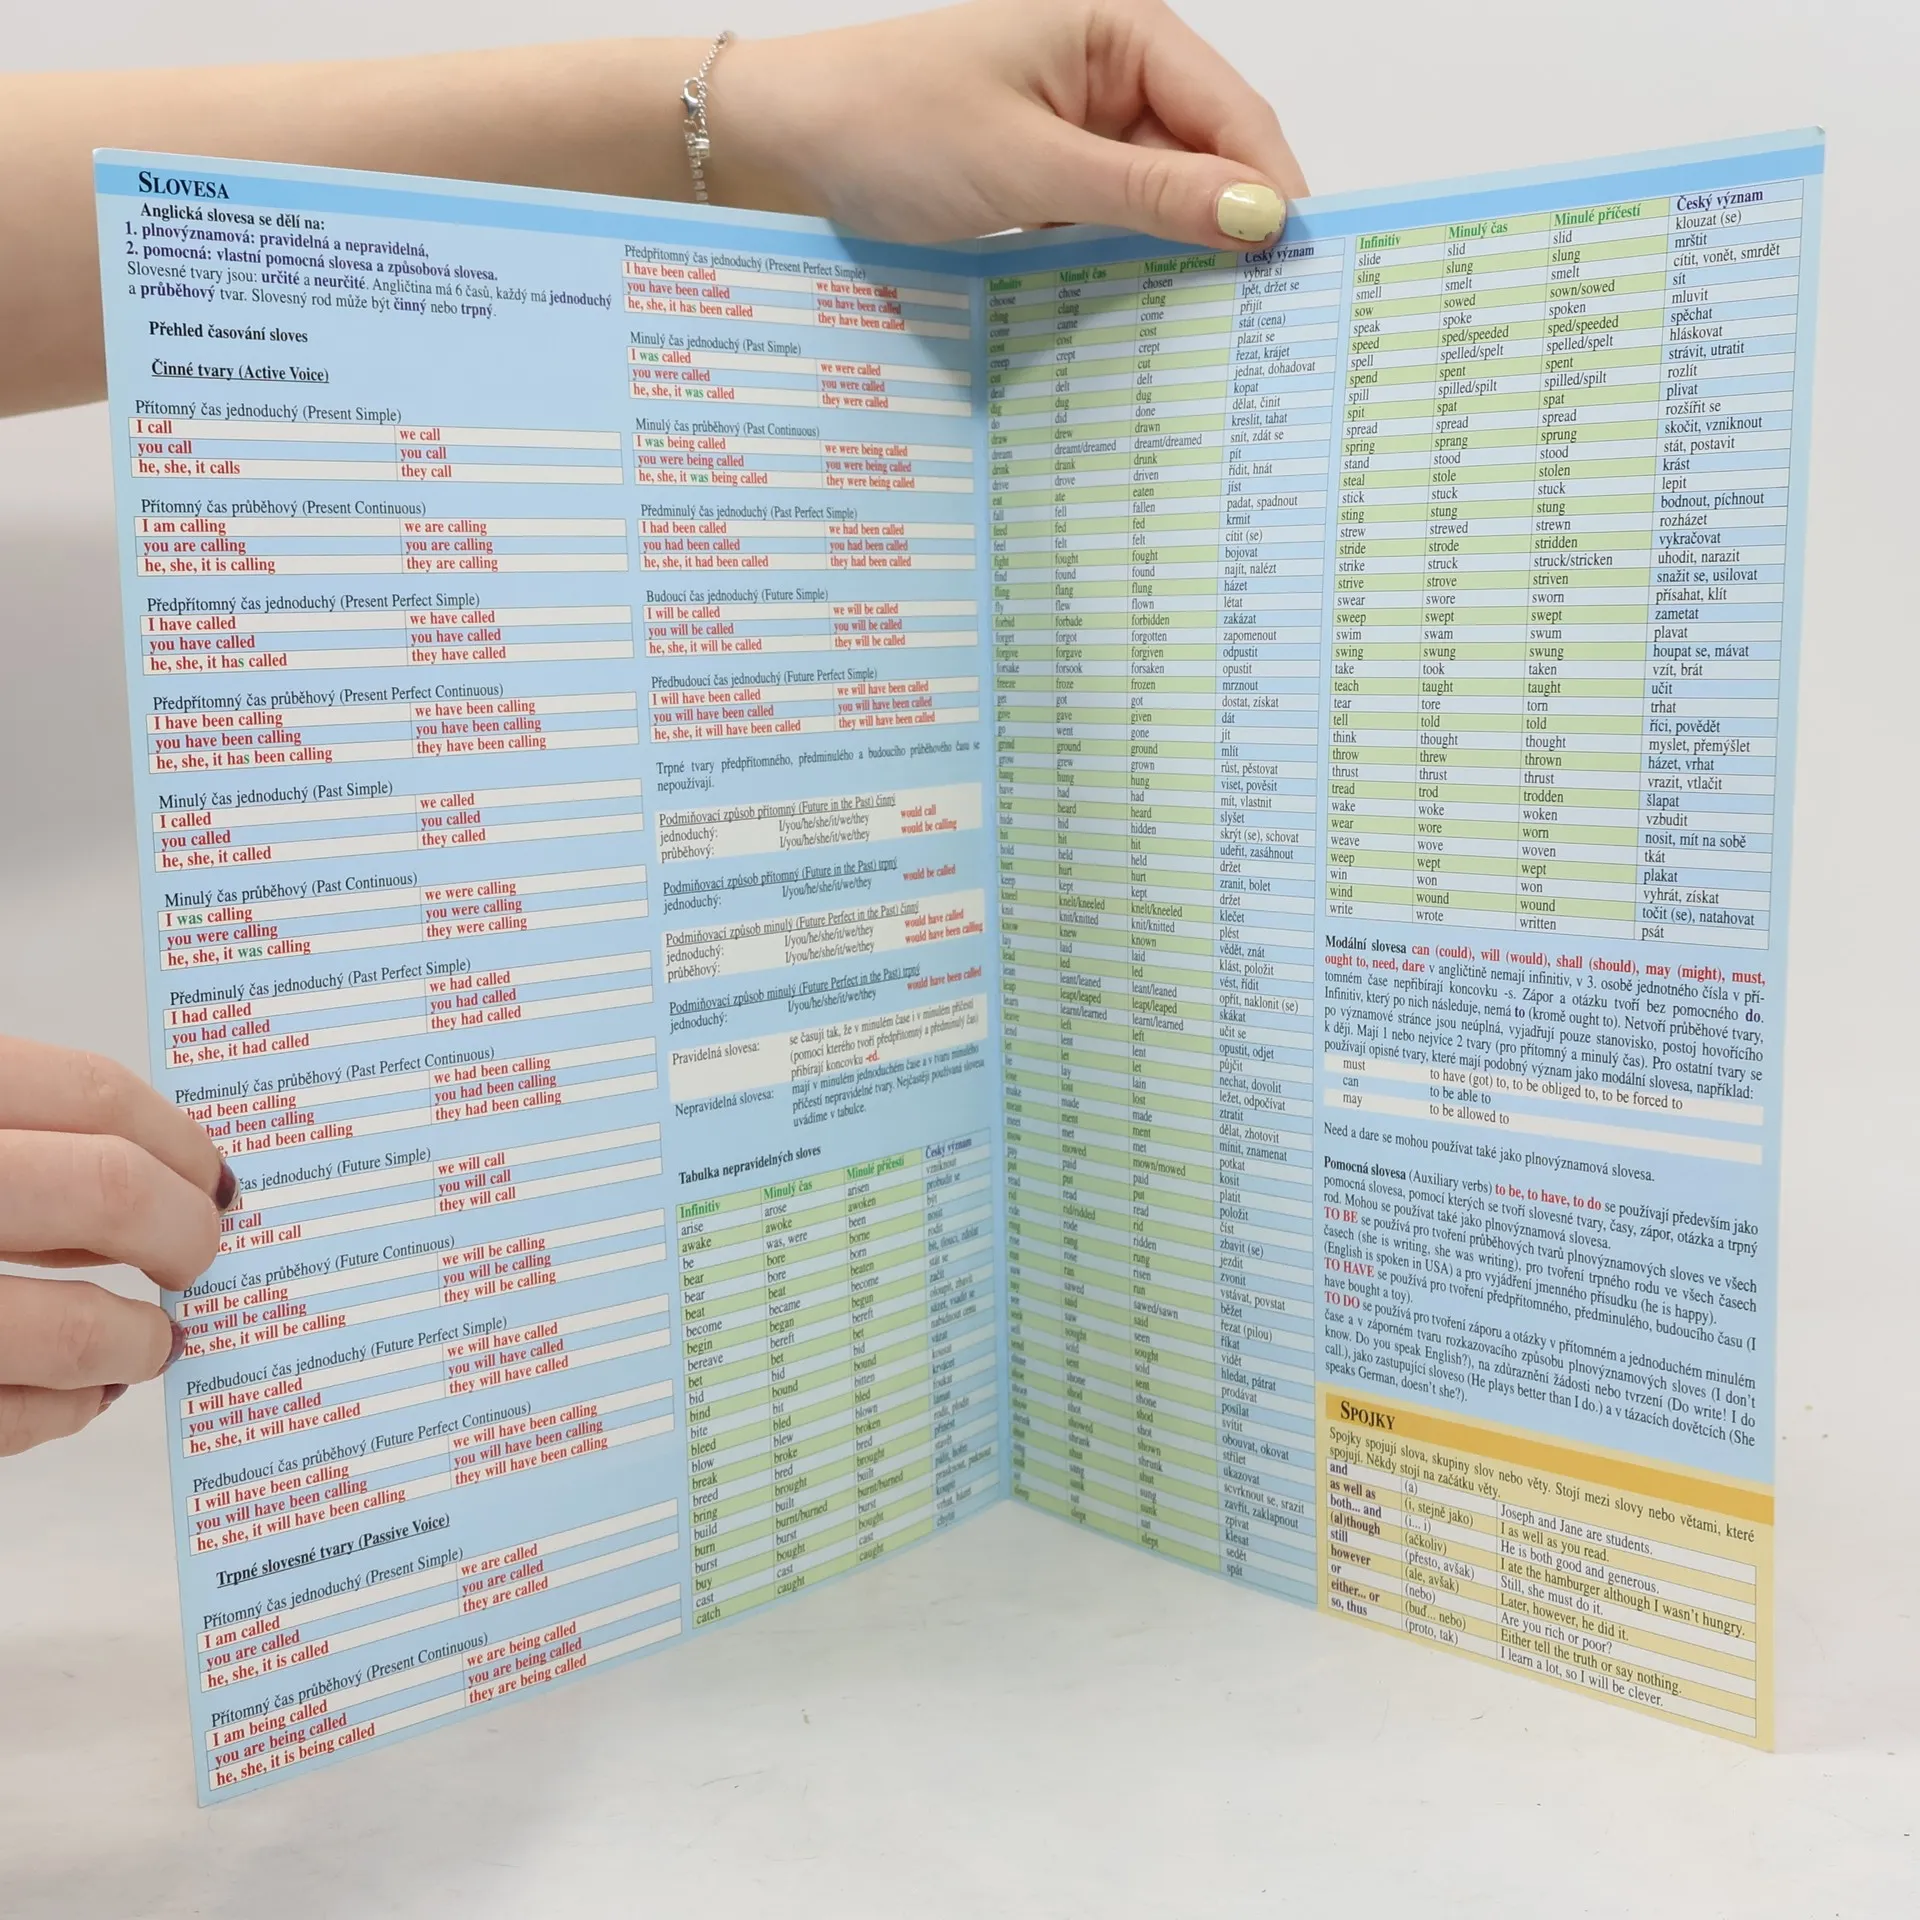 SLOVESA
Anglická slovesa se dělí na:
1. plnovýznamová: pravidelná a nepravidelná,
2. pomocná: vlastní pomocná slovesa a způsobová slovesa.
Slovesné tvary jsou: určité a neurčité. Angličtina má 6 časů, každý má jednoduchý
a průběhový tvar. Slovesný rod může být činný nebo trpný.
Přehled časování sloves
Činné tvary (Active Voice)
Přítomný čas jednoduchý (Present Simple)
I call we call
you call you call
he, she, it calls they call
Přítomný čas průběhový (Present Continuous)
I am calling we are calling
you are calling you are calling
he, she, it is calling they are calling
Předpřítomný čas jednoduchý (Present Perfect Simple)
I have called we have called
you have called you have called
he, she, it has called they have called
Předpřítomný čas průběhový (Present Perfect Continuous)
I have been calling we have been calling
you have been calling you have been calling
he, she, it has been calling they have been calling
Minulý čas jednoduchý (Past Simple)
I called we called
you called you called
he, she, it called they called
Minulý čas průběhový (Past Continuous)
I was calling we were calling
you were calling you were calling
he, she, it was calling they were calling
Předminulý čas jednoduchý (Past Perfect Simple)
I had called we had called
you had called you had called
he, she, it had called they had called
Předminulý čas průběhový (Past Perfect Continuous)
had been calling we had been calling
had been calling you had been calling
it had been calling they had been calling
čas jednoduchý (Future Simple)
we will call
call you will call
it will call they will call
Budoucí čas průběhový (Future Continuous)
I will be calling we will be calling
you will be calling you will be calling
he, she, it will be calling they will be calling
Předbudoucí čas jednoduchý (Future Perfect Simple)
I will have called we will have called
you will have called you will have called
he, she, it will have called they will have called
Předbudoucí čas průběhový (Future Perfect Continuous)
I will have been calling we will have been calling
you will have been calling you will have been calling
he, she, it will have been calling they will have been calling
Trpné slovesné tvary (Passive Voice)
Přítomný čas jednoduchý (Present Simple)
I am called we are called
you are called you are called
he, she, it is called they are called
Přítomný čas průběhový (Present Continuous)
I am being called we are being called
you are being called you are being called
he, she, it is being called they are being called
Předpřítomný čas jednoduchý (Present Perfect Simple)
I have been called we have been called
you have been called you have been called
he, she, it has been called they have been called
Minulý čas jednoduchý (Past Simple)
I was called we were called
you were called you were called
he, she, it was called they were called
Minulý čas průběhový (Past Continuous)
I was being called we were being called
you were being called you were being called
he, she, it was being called they were being called
Předminulý čas jednoduchý (Past Perfect Simple)
I had been called we had been called
you had been called you had been called
he, she, it had been called they had been called
Budoucí čas jednoduchý (Future Simple)
I will be called we will be called
you will be called you will be called
he, she, it will be called they will be called
Předbudoucí čas jednoduchý (Future Perfect Simple)
I will have been called we will have been called
you will have been called you will have been called
he, she, it will have been called they will have been called
Trpné tvary předpřítomného, předminulého a budoucího průběhového času se
nepoužívají.
Podmiňovací způsob přítomný (Future in the Past) činný
jednoduchý: I/you/he/she/it/we/they would call
průběhový: I/you/he/she/it/we/they would be calling
Podmiňovací způsob přítomný (Future in the Past) trpný
jednoduchý: I/you/he/she/it/we/they would be called
Podmiňovací způsob minulý (Future Perfect in the Past) činný
jednoduchý: I/you/he/she/it/we/they would have called
průběhový: I/you/he/she/it/we/they would have been calling
Podmiňovací způsob minulý (Future Perfect in the Past) trpný
jednoduchý: I/you/he/she/it/we/they would have been called
Pravidelná slovesa: se časují tak, že v minulém čase i v minulém příčestí
(pomocí kterého tvoří předpřítomný a předminulý čas)
přibírají koncovku -ed.
Nepravidelná slovesa: mají v minulém jednoduchém čase a v tvaru minulého
příčestí nepravidelné tvary. Nejčastěji používaná slovesa
uvádíme v tabulce.
Tabulka nepravidelných sloves
Infinitiv Minulý čas Minulé příčestí Český význam
arise arose arisen vzniknout
awake awoke awoken probudit se
be was, were been být
bear bore borne nosit
bear bore born rodit
beat beat beaten bít, tlouci, zdolat
become became become stát se
begin began begun začít
bereave bereft bereft
bet bet bet
bid bid bid
bind bound bound vázat
bite bit bitten kousat
bleed bled bled krvácet
blow blew blown foukat
break broke broken lámat
breed bred bred
bring brought brought přinést
build built built stavět
burn burnt/burned burnt/burned
burst burst burst
buy bought bought koupit
cast cast cast vrhat, házet
catch caught caught chytit
Infinitiv Minulý čas Minulé příčestí Český význam
choose chose chosen vybrat si
cling clung clung lpět, držet se
come came come přijít
cost cost cost stát (cena)
creep crept crept plazit se
cut cut cut řezat, krájet
deal delt delt jednat, dohadovat
dig dug dug kopat
do did done dělat, činit
draw drew drawn kreslit, tahat
dream dreamt/dreamed dreamt/dreamed snít, zdát se
drink drank drunk pít
drive drove driven řídit, hnát
eat ate eaten jíst
fall fell fallen padat, spadnout
feed fed fed krmit
feel felt felt cítit (se)
fight fought fought bojovat
find found found najít, nalézt
fling flang flung házet
fly flew flown létat
forbid forbade forbidden zakázat
forget forgot forgotten zapomenout
forgive forgave forgiven odpustit
forsake forsook forsaken opustit
freeze froze frozen mrznout
get got got dostat, získat
give gave given dát
go went gone jít
grind ground ground mlít
grow grew grown růst, pěstovat
hang hung hung viset, pověsit
have had had mít, vlastnit
hear heard heard slyšet
hide hid hidden skrýt (se), schovat
hit hit hit udeřit, zasáhnout
hold held held držet
hurt hurt hurt zranit, bolet
keep kept kept držet
kneel knelt/kneeled knelt/kneeled klečet
knit knit/knitted knit/knitted plést
know knew known vědět, znát
lay laid laid klást, položit
lead led led vést, řídit
lean leant/leaned leant/leaned opřít, naklonit (se)
leap leapt/leaped leapt/leaped skákat
learn learnt/learned learnt/learned učit se
leave left left opustit, odjet
lend lent lent půjčit
let let let nechat, dovolit
lie lay lain ležet, odpočívat
lose lost lost ztratit
make made made dělat, zhotovit
mean ment ment mínit, znamenat
meet met met potkat
mow mowed mown/mowed kosit
pay paid paid platit
put put put položit
read read read číst
rid rid/ridded rid zbavit (se)
ride rode ridden jezdit
ring rang rung zvonit
rise rose risen vstávat, povstat
run ran run běžet
saw sawed sawed/sawn řezat (pilou)
say said said říkat
see saw seen vidět
seek sought sought hledat, pátrat
sell sold sold prodávat
send sent sent posílat
shine shone shone svítit
shoe shod shod obouvat, okovat
shoot shot shot střílet
show showed shown ukazovat
shrink shrank shrunk scvrknout se, srazit
shut shut shut zavřít, zaklapnout
sing sang sung zpívat
sink sank sunk klesat
sit sat sat sedět
sleep slept slept spát
Infinitiv Minulý čas Minulé příčestí Český význam
slide slid slid klouzat (se)
sling slung slung mrštit
smell smelt smelt cítit, vonět, smrdět
sow sowed sown/sowed sít
speak spoke spoken mluvit
speed sped/speeded sped/speeded spěchat
spell spelled/spelt spelled/spelt hláskovat
spend spent spent strávit, utratit
spill spilled/spilt spilled/spilt rozlít
spit spat spat plivat
spread spread spread rozšířit se
spring sprang sprung skočit, vzniknout
stand stood stood stát, postavit
steal stole stolen krást
stick stuck stuck lepit
sting stung stung bodnout, píchnout
strew strewed strewn rozházet
stride strode stridden vykračovat
strike struck struck/stricken uhodit, narazit
strive strove striven snažit se, usilovat
swear swore sworn přísahat, klít
sweep swept swept zametat
swim swam swum plavat
swing swung swung houpat se, mávat
take took taken vzít, brát
teach taught taught učit
tear tore torn trhat
tell told told říci, povědět
think thought thought myslet, přemýšlet
throw threw thrown házet, vrhat
thrust thrust thrust vrazit, vtlačit
tread trod trodden šlapat
wake woke woken vzbudit
wear wore worn nosit, mít na sobě
weave wove woven tkát
weep wept wept plakat
win won won vyhrát, získat
wind wound wound točit (se), natahovat
write wrote written psát
Modální slovesa can (could), will (would), shall (should), may (might), must,
ought to, need, dare v angličtině nemají infinitiv, v 3. osobě jednotného čísla v pří-
tomném čase nepřibírají koncovku -s. Zápor a otázku tvoří bez pomocného do.
Infinitiv, který po nich následuje, nemá to (kromě ought to). Netvoří průběhové tvary,
po významové stránce jsou neúplná, vyjadřují pouze stanovisko, postoj hovořícího
k ději. Mají 1 nebo nejvíce 2 tvary (pro přítomný a minulý čas). Pro ostatní tvary se
používají opisné tvary, které mají podobný význam jako modální slovesa, například:
must to have (got) to, to be obliged to, to be forced to
can to be able to
may to be allowed to
Need a dare se mohou používat také jako plnovýznamová slovesa.
Pomocná slovesa (Auxiliary verbs) to be, to have, to do se používají především jako
pomocná slovesa, pomocí kterých se tvoří slovesné tvary, časy, zápor, otázka a trpný
rod. Mohou se používat také jako plnovýznamová slovesa.
TO BE se používá pro tvoření průběhových tvarů plnovýznamových sloves ve všech
časech (she is writing, she was writing), pro tvoření trpného rodu ve všech časech
(English is spoken in USA) a pro vyjádření jmenného přísudku (he is happy).
TO HAVE se používá pro tvoření předpřítomného, předminulého, budoucího času (I
have bought a toy).
TO DO se používá pro tvoření záporu a otázky v přítomném a jednoduchém minulém
čase a v záporném tvaru rozkazovacího způsobu plnovýznamových sloves (I don't
know. Do you speak English?), na zdůraznění žádosti nebo tvrzení (Do write! I do
call.), jako zastupující sloveso (He plays better than I do.) a v tázacích dovětcích (She
speaks German, doesn't she?).
SPOJKY
Spojky spojují slova, skupiny slov nebo věty. Stojí mezi slovy nebo větami, které
spojují. Někdy stojí na začátku věty.
and (a) Joseph and Jane are students.
as well as (i, stejně jako) I as well as you read.
both... and (i... i) He is both good and generous.
(al)though (ačkoliv) I ate the hamburger although I wasn't hungry.
still (přesto, avšak) Still, she must do it.
however (ale, avšak) Later, however, he did it.
or (nebo) Are you rich or poor?
either... or (buď... nebo) Either tell the truth or say nothing.
so, thus (proto, tak) I learn a lot, so I will be clever.